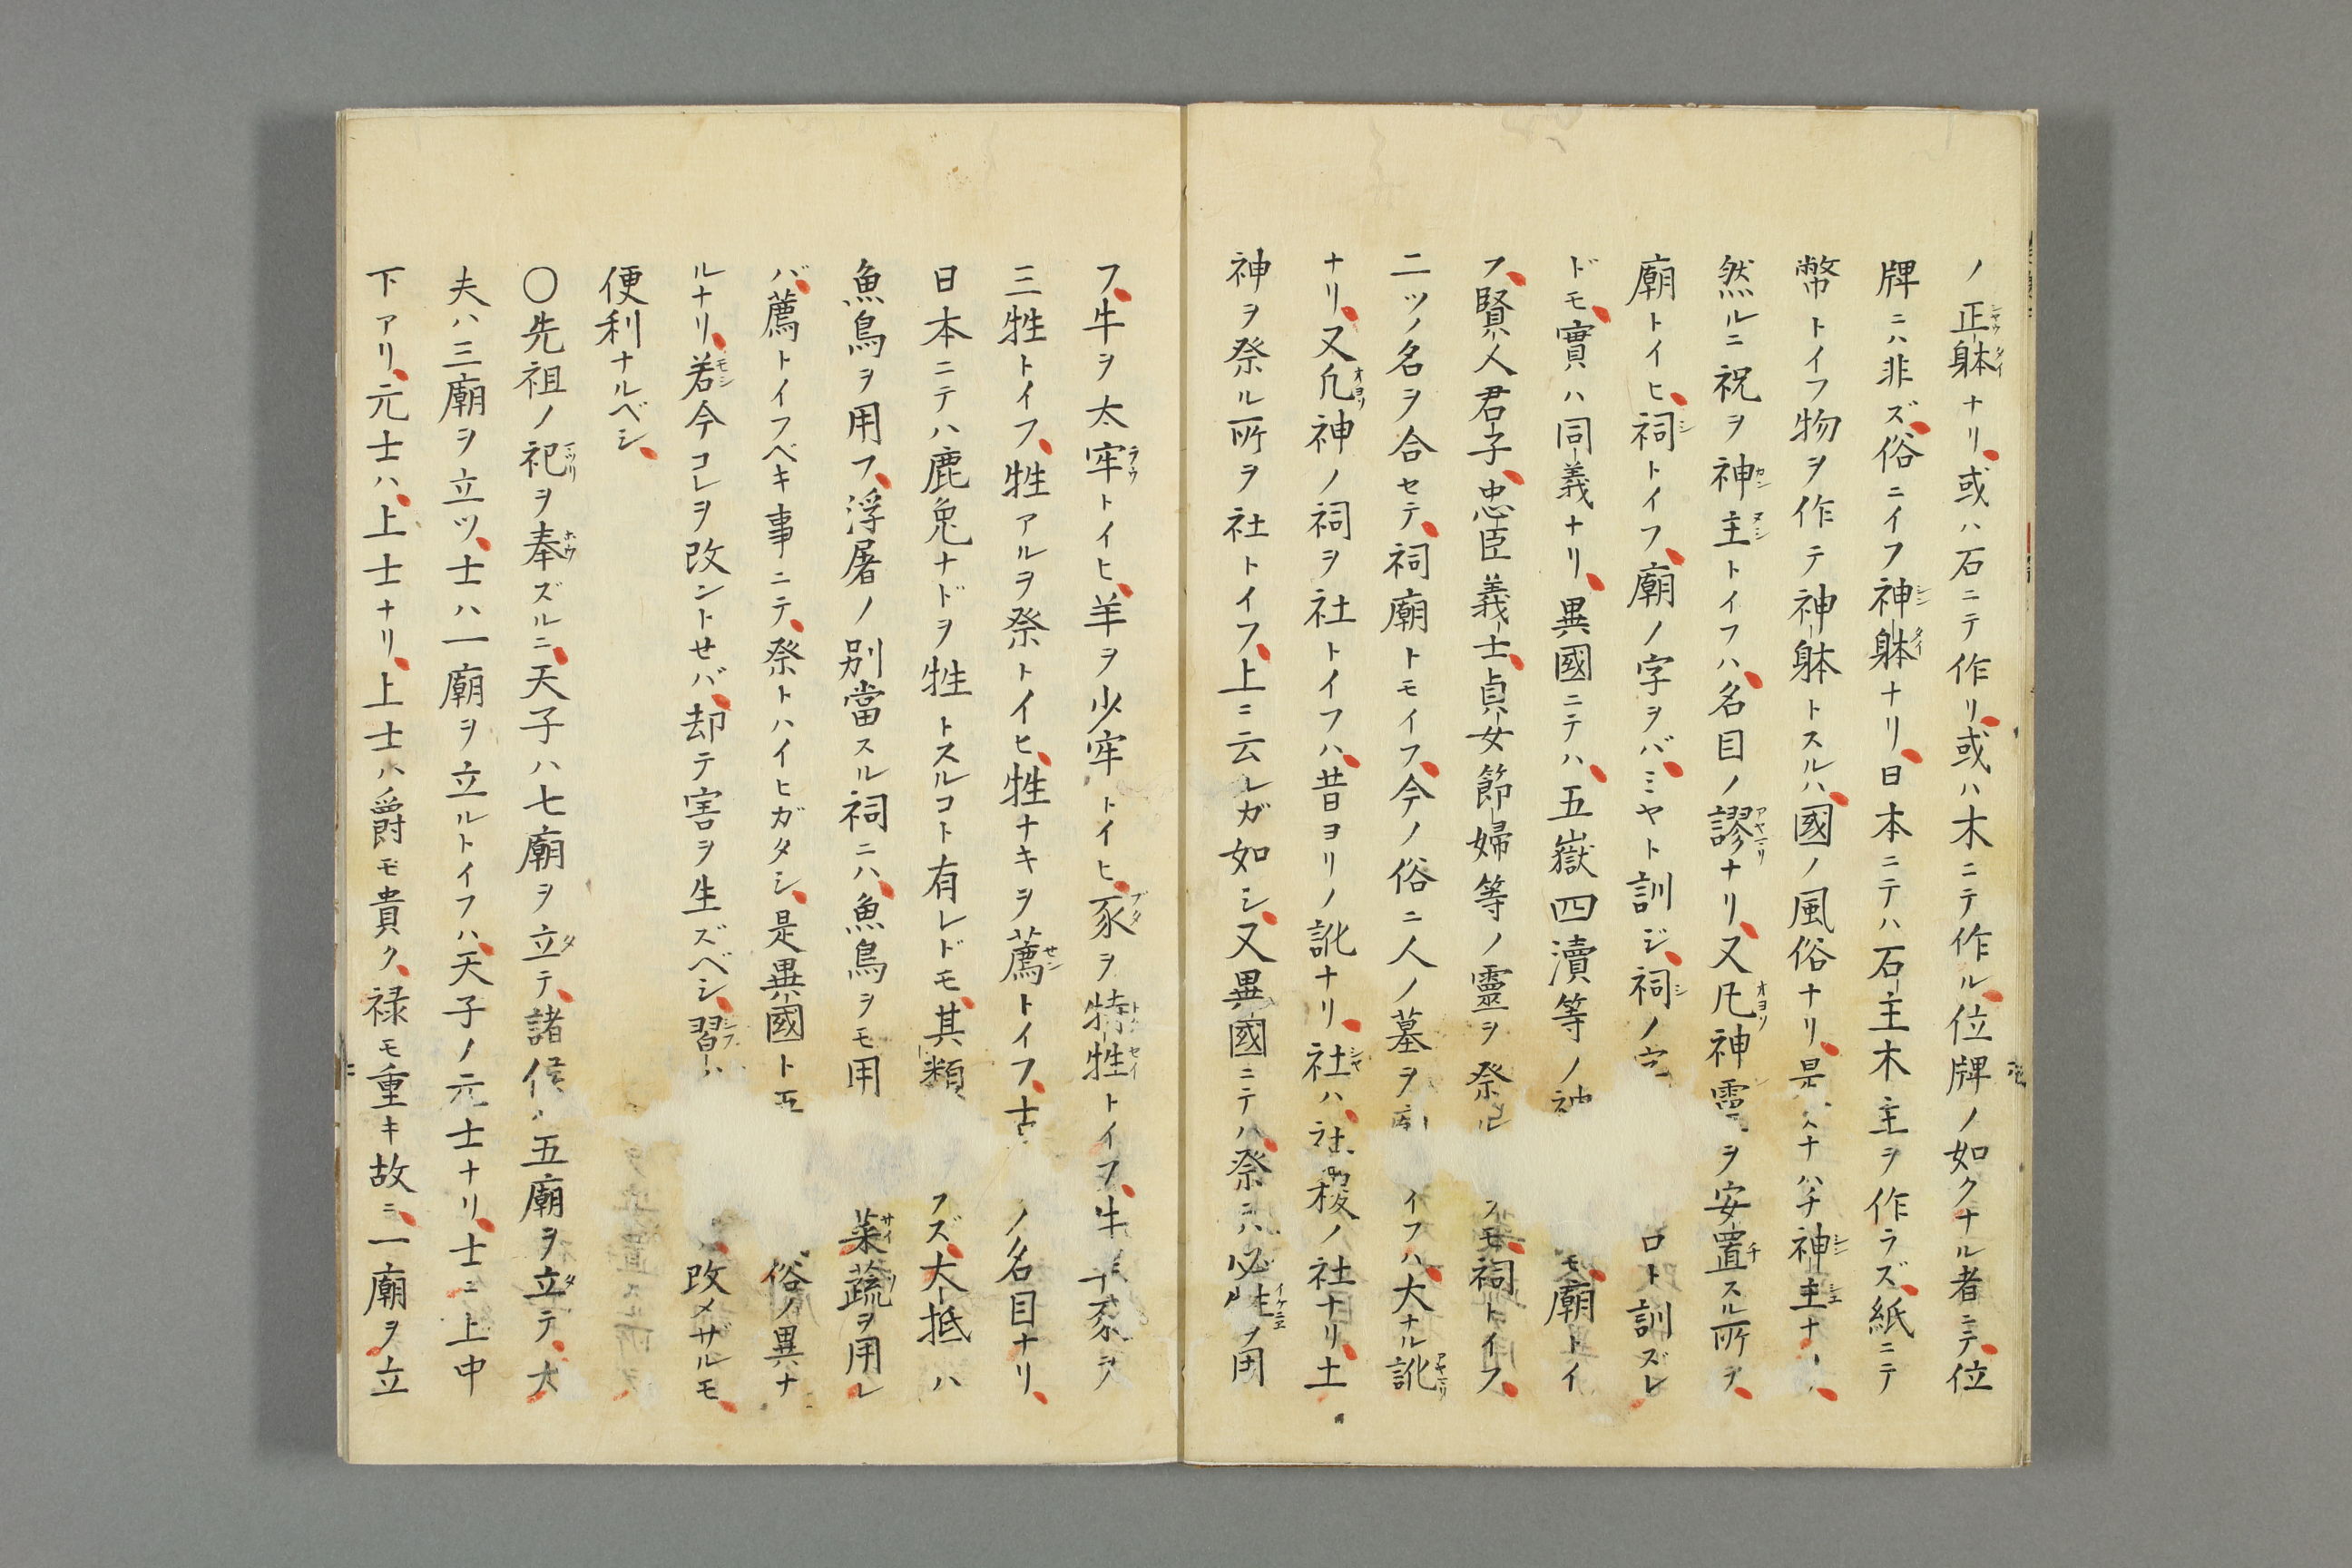 ノ正躰ナリ、或ハ石ニテ作リ、或ハ木ニテ作ル、位牌ノ如クナル者ニテ、位
牌ニハ非ズ、俗ニイフ神躰ナリ、日本ニテハ石主木主ヲ作ラズ、紙ニテ
幣トイフ物ヲ作テ神躰トスルハ、國ノ風俗ナリ、是 ナハチ神主ナ
然ルニ祝ヲ神主トイフハ、名目ノ謬ナリ、又凡神霊ヲ安置スル所ヲ、
廟トイヒ、祠トイフ、廟ノ字ヲバ、ミヤト訓ジ、祠ノ字 ロト訓ズレ
ドモ、實ハ同義ナリ、異國ニテハ、五嶽四瀆等ノ神 モ、廟トイ
フ、賢人君子、忠臣義士、貞女節婦等ノ靈ヲ祭 モ、祠トイフ、
二ツノ名ヲ合セテ、祠廟トモイフ、今ノ俗ニ人ノ墓ヲ イフハ、大ナル訛
ナリ、又凡神ノ祠ヲ社トイフハ、昔ヨリノ訛ナリ、社ハ、社稷ノ社ナリ、土
神ヲ祭ル所ヲ社トイフ、上ニ云レガ如シ、又異國ニテハ、祭ニハ必牲ヲ用
フ、牛ヲ太牢トイヒ、羊ヲ少牢トイヒ、豕ヲ特牲トイフ、牛 豕ヲ
三牲トイフ、牲アルヲ祭トイヒ、牲ナキヲ薦トイフ、古 ノ名目ナリ、
日本ニテハ鹿兎ナドヲ牲トスルコト有レドモ、其類 フズ、大抵ハ
魚鳥ヲ用フ、浮屠ノ別當スル祠ニハ、魚鳥ヲモ用 菜蔬ヲ用レ
バ、薦トイフベキ事ニテ、祭トハイヒガタシ、是異國ト 俗ノ異ナ
ルナリ、若今コレヲ改ントセバ、却テ害ヲ生ズベシ、習ハ 改メザルモ、
便利ナルベシ、
〇先祖ノ祀ヲ奉ズルニ、天子ハ七廟ヲ立テ、諸侯ハ五廟ヲ立テ、大
夫ハ三廟ヲ立ツ、士ハ一廟ヲ立ルトイフハ、天子ノ元士ナリ、士ニ上中
下アリ、元士ハ、上士ナリ、上士ハ爵モ貴ク、禄モ重キ故ニ、一廟ヲ立